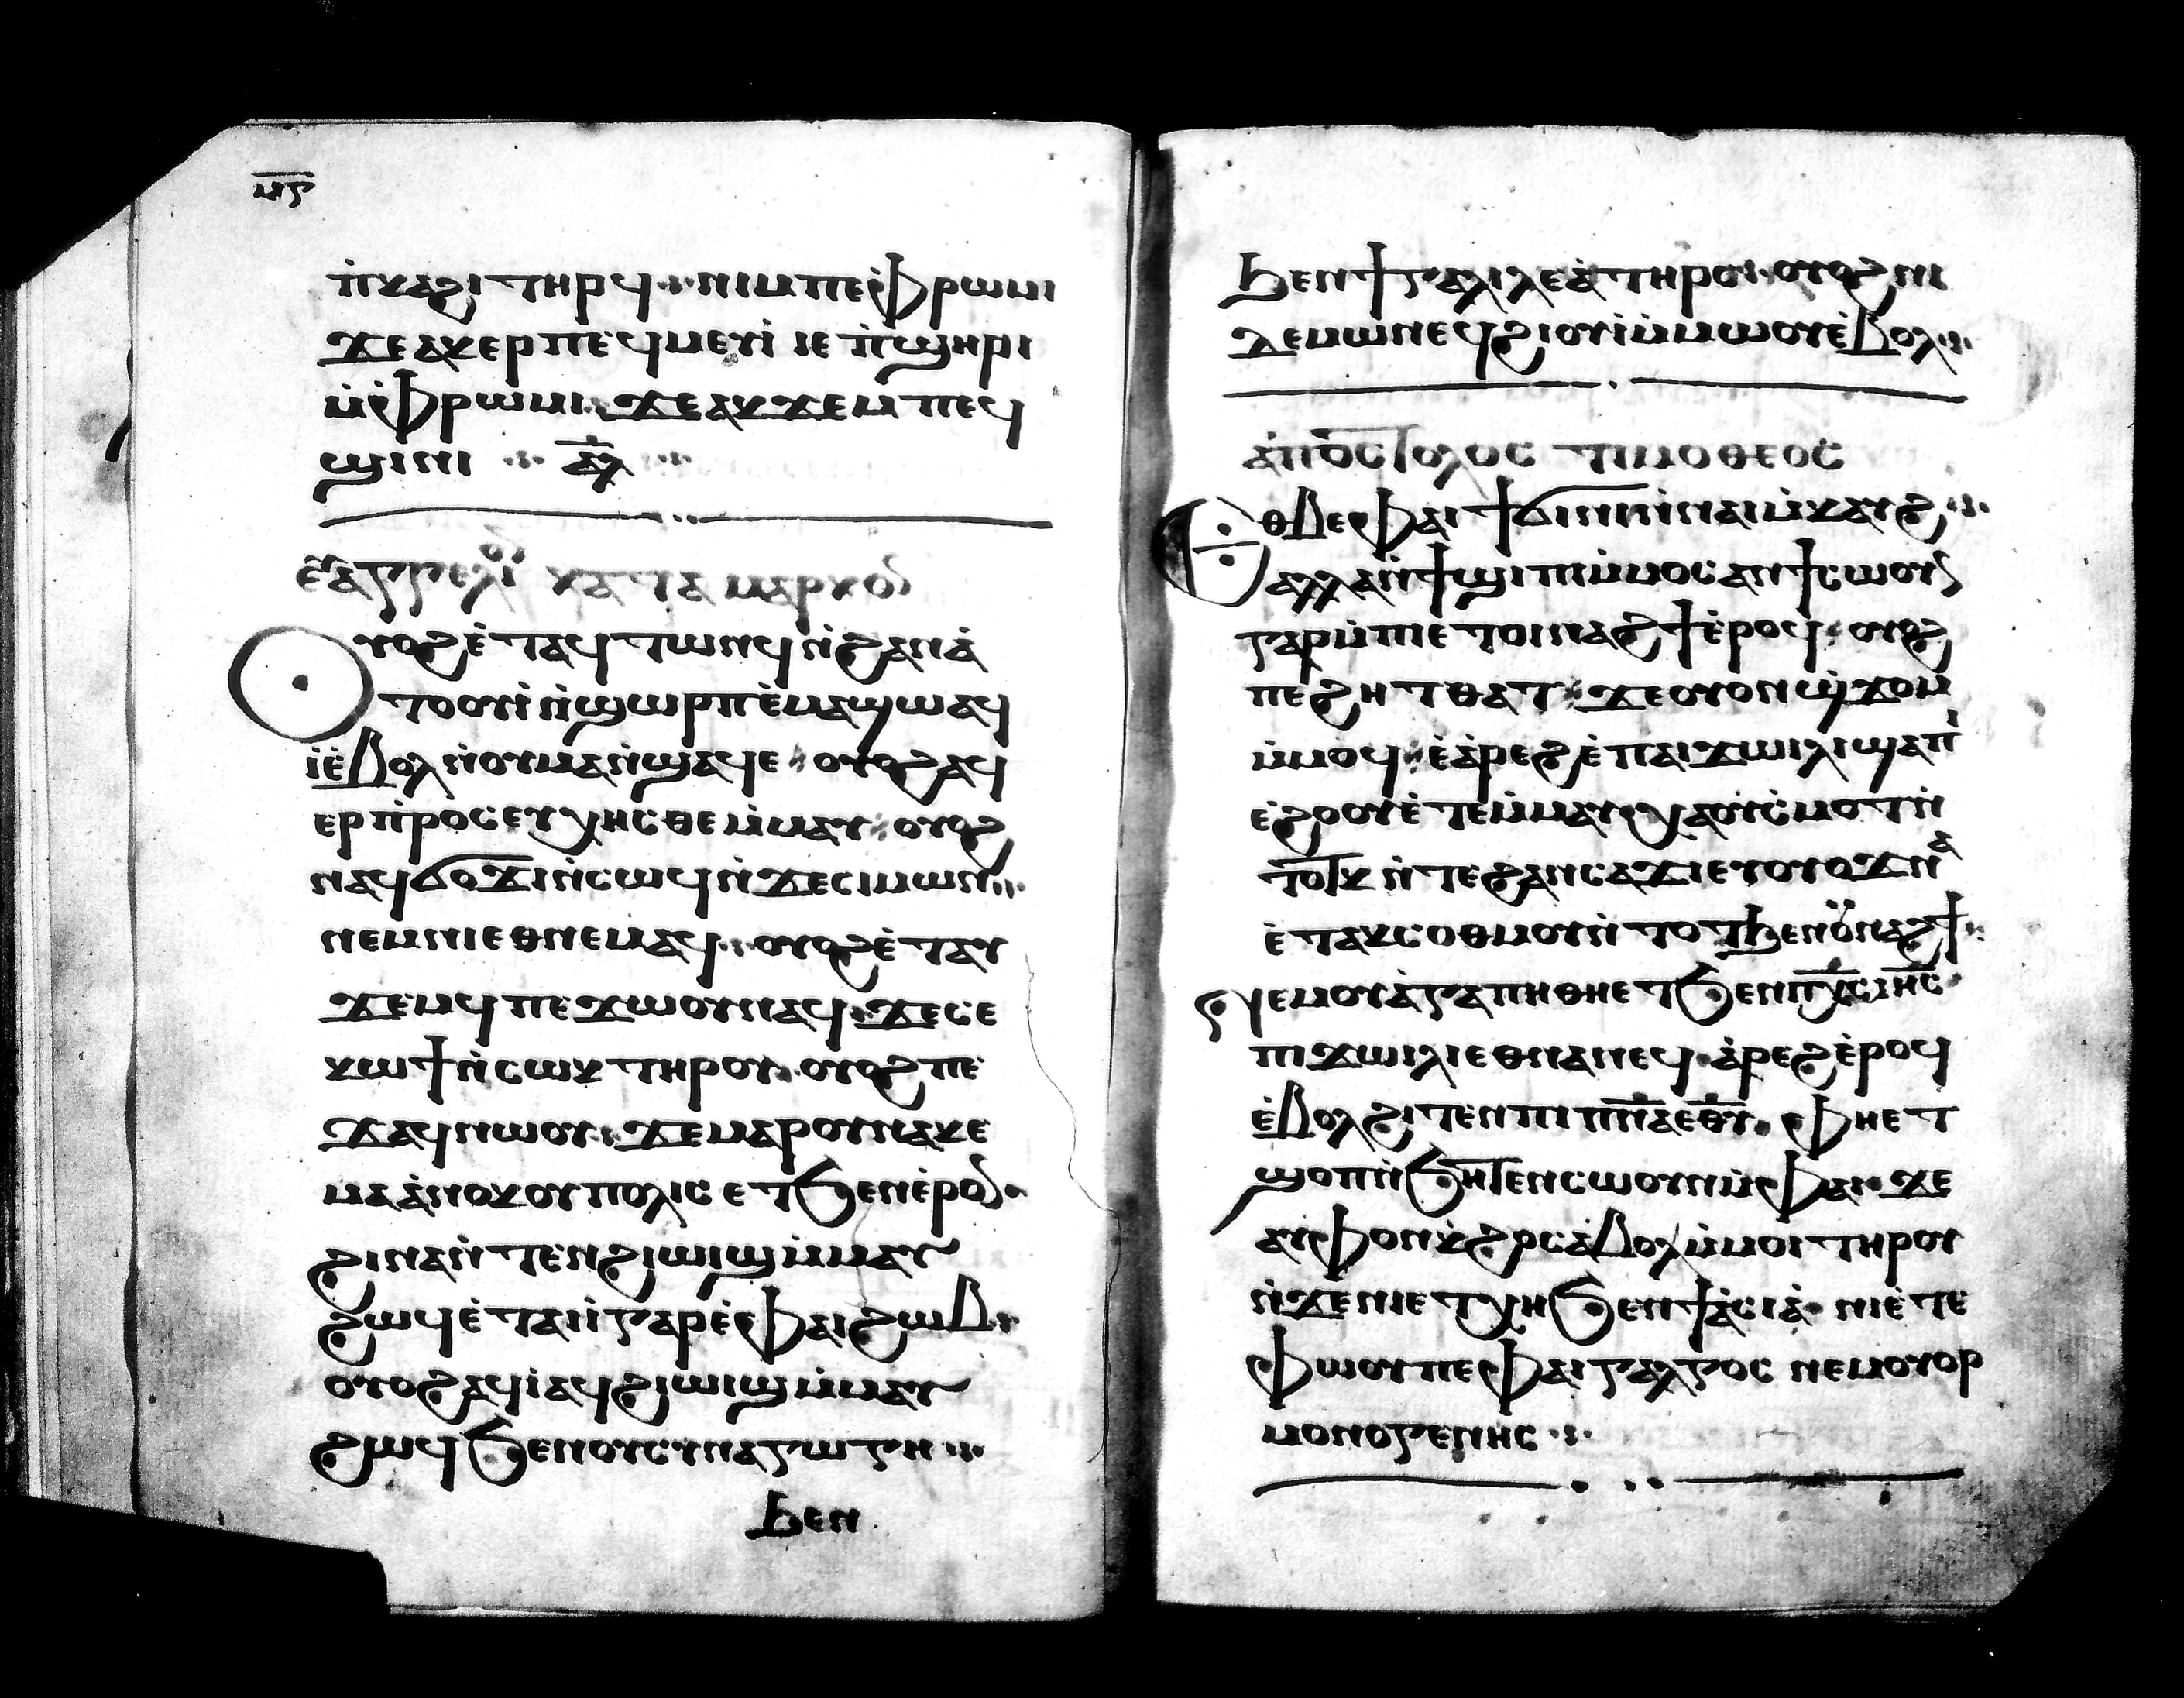 ⲙⲋ
ⲡ̇ⲕⲁϩⲓ ⲧⲏⲣϥ ⲛⲓⲙ ⲡⲉ ⲫ̇ⲣⲱⲙⲓ
ϫⲉ ⲁⲕⲉⲣⲡⲉϥⲙⲉⲩⲓ̇ ⲓⲉ ⲡ̇ϣⲏⲣⲓ
ⲙ̇ⲫ̇ⲣⲱⲙⲓ ϫⲉ ⲁⲕϫⲉⲙⲡⲉϥ
ϣⲓⲛⲓ ⲁ̅ⲗ̅
ⲉⲩⲁⲅⲅⲉⲗⲓⲟⲛ ⲕⲁⲧⲁ ⲙⲁⲣⲕⲟⲩ
Ⲟⲩⲟϩ ⲉ̇ⲧⲁϥⲧⲱⲛϥ ⲛ̇ϩⲁⲛⲁ̇
ⲧⲟⲟⲩⲓ̇ ⲛ̇ϣⲱⲣⲡ ⲉ̇ⲙⲁϣⲱ ⲁϥ
ⲓ̇ ⲉ̇ⲃⲟⲗ ⲛ̇ⲟⲩⲙⲁ ⲛ̇ϣⲁϥⲉ ⲟⲩⲟϩ ⲁϥ
ⲉⲣⲡ̇ⲣⲟⲥⲉⲩⲭⲏⲥⲑⲉ ⲙ̇ⲙⲁⲩ ⲟⲩⲟϩ
ⲛⲁϥϭⲟϫⲓ ⲛ̇ⲥⲱϥ ⲛ̇ϫⲉ ⲥⲓⲙⲱⲛ
ⲛⲉⲙ ⲛⲓⲉⲑⲛⲉⲙⲁϥ ⲟⲩⲟϩ ⲉ̇ⲧⲁⲩ
ϫⲉⲙϥ ⲡⲉϫⲱⲟⲩ ⲛⲁϥ ϫⲉ ⲥⲉ
ⲕⲱϯ ⲛ̇ⲥⲱⲕ ⲧⲏⲣⲟⲩ ⲟⲩⲟϩ ⲡⲉ
ϫⲁϥ ⲛⲱⲟⲩ ϫⲉ ⲙⲁⲣⲟⲛ ⲛⲁⲕⲉ
ⲙⲁ ⲁ̇ⲛⲟⲕⲟⲩⲡⲟⲗⲓⲥ ⲉⲧϧⲉⲛ ⲉ̇ⲣⲟⲩ
ϩⲓⲛⲁ ⲛ̇ⲧⲉⲛϩⲓⲱⲓϣ ⲙ̇ⲙⲁⲩ
ϩⲱϥ ⲉ̇ⲧⲁⲓⲓ̇ ⲅⲁⲣ ⲉ̇ⲫⲁⲓ ϩⲱⲃ
ⲟⲩⲟϩ ⲁϥⲓ̇ ⲁϥϩⲓⲱⲓϣ ⲙ̇ⲙⲁⲩ
ϩⲱϥ ϧⲉⲛ ⲟⲩⲥⲩⲛⲁⲅⲱⲅⲏ
ϧⲉⲛ
ϧⲉⲛ ϯⲅⲁⲗⲓⲗⲉⲁ̇ ⲧⲏⲣⲥ ⲟⲩⲟϩ ⲛⲓ
ⲇⲉⲙⲱⲛ ⲉϥϩⲓⲟⲩⲓ̇ ⲙ̇ⲙⲱⲟⲩ ⲉ̇ⲃⲟⲗ
ⲁ̇ⲡⲟⲥⲧⲟⲗⲟⲥ ⲧⲓⲙⲟⲑⲉⲟⲥ
Ⲉⲑⲃⲉ ⲫⲁⲓ ϯϭⲓ ⲛ̇ⲛⲁⲓⲙ̇ⲕⲁⲩϩ
ⲁⲗⲗⲁ ⲛ̇ϯϣⲓⲡⲓ ⲙ̇ⲙⲟⲥ ⲁⲛ ϯⲥⲱⲟⲩⲛ
ⲅⲁⲣ ⲙ̇ⲡⲓⲉⲧⲟⲓⲛⲁϩϯ ⲉ̇ⲣⲟϥ ⲟⲩⲟϩ
ⲡⲉϩⲏⲧ ⲑⲁⲧ ϫⲉ ⲟⲩⲟⲛ ϣϫⲟⲙ
ⲙ̇ⲙⲟϥ ⲉ̇ⲁ̇ⲣⲉϩ ⲉ̇ⲡⲁⲓϫⲱⲓⲗⲓ ϣⲁⲡⲓ̇
ⲉ̇ϩⲟⲟⲩ ⲉ̇ⲧⲉⲙ̇ⲙⲁⲩ ⲭⲁ ⲟⲩⲥ̇ⲙⲟⲧ ⲛ̇
ⲧⲟⲧⲕ ⲛ̇ⲧⲉ ϩⲁⲛⲥⲁϫⲓ ⲉⲩⲟⲩⲟϫ ⲛⲁ
ⲉ̇ⲧⲁⲕⲥⲟⲑⲙⲟⲩ ⲛ̇ⲧⲟⲧ ϧⲉⲛ ⲟⲩⲛⲁϩϯ
ⲛⲉⲙ ⲟⲩⲁ̇ⲅⲁⲡⲏ ⲑⲏⲉⲧϧⲉⲛ ⲡⲭ̅ⲥ̅ ⲓⲏ̅ⲥ̅
ⲡⲓϫⲱⲓⲗⲓ ⲉⲑⲛⲁⲛⲉϥ ⲁ̇ⲣⲉϩ ⲉ̇ⲣⲟϥ
ⲉ̇ⲃⲟⲗ ϩⲓⲧⲉⲛ ⲡⲓⲡⲛ̅ⲁ̅ ⲉⲑⲩ̅ ⲫⲏⲉⲧ
ϣⲟⲡ ⲛ̇ϧⲏⲧⲉⲛ ⲥⲱⲟⲩⲛ ⲙ̇ⲫⲁⲓ ϫⲉ
ⲁⲩⲫⲟⲛϩⲟⲩ ⲥⲁⲃⲟⲗ ⲙ̇ⲙⲟⲓ ⲧⲏⲣⲟⲩ
ⲛ̇ϫⲉ ⲛⲓⲉⲧⲭⲏ ϧⲉⲛ ϯⲁ̇ⲥⲓⲁ̇ ⲛⲓⲉ̇ⲧⲉ
ⲫⲱⲟⲩ ⲡⲉ ⲫⲁⲓⲅⲁⲗⲅⲟⲥ ⲛⲉⲙ ⲟⲩⲟⲣ
ⲙⲟⲛⲟⲅⲉⲛⲏⲥ